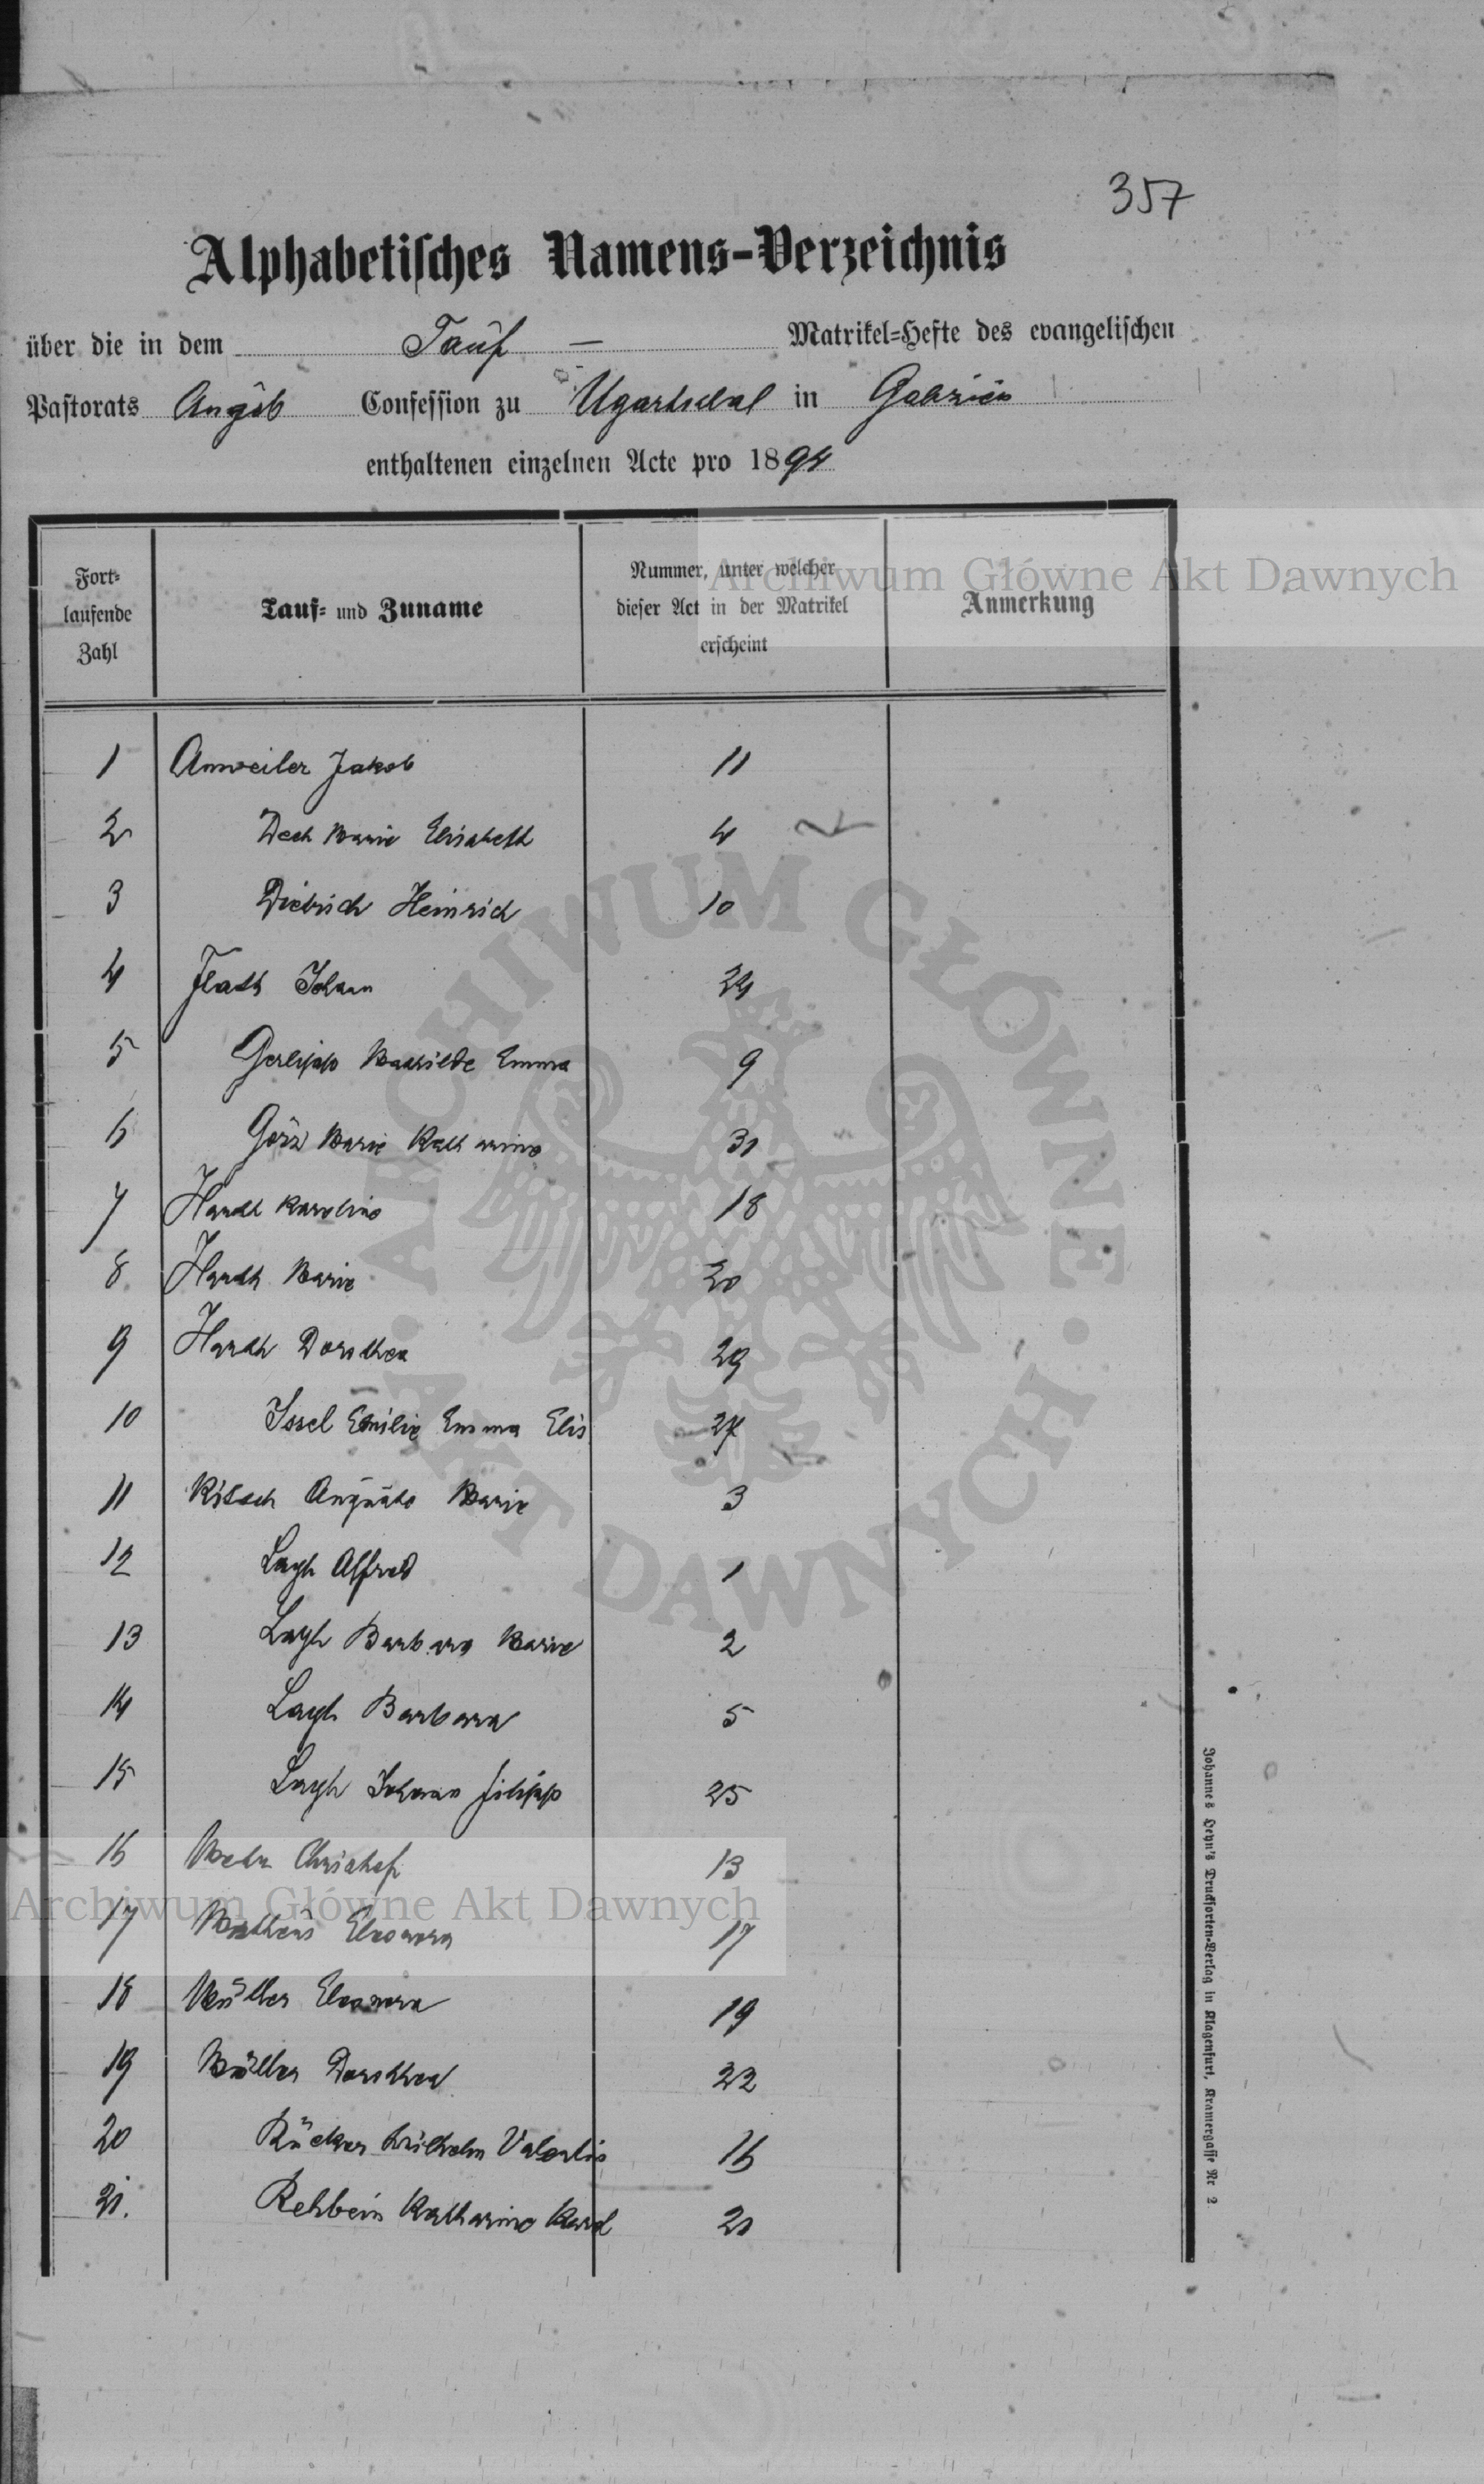 357
Alphabetisches Namens-Verzeichnis
über die in dem Tauf — Matrikel-Hefte des evangelischen
Pastorats Augsb Confession zu Ugartsthal in Galizien
enthaltenen einzelnen Acte pro 1894
Fort-
laufende
Zahl
Tauf- und Zuname
Nummer, unter welcher
dieser Act in der Matrikel
erscheint
Anmerkung
Archiwum Główne Akt Dawnych
1 Anweiler Jakob 11
2 Dech Marie Elisabeth 4
3 Diebrich Heinrich 10
4 Flath Johann 24
5 Gerlipp Mathilde Emma 9
6 Görz Marie Katharina 31
7 Harth Karolina 18
8 Harth Marie 20
9 Harth Dorothea 29
10 Issel Emilie Emma Elis 27
11 Kitsch Auguste Marie 3
12 Layh Alfred 1
13 Layh Barbara Marie 2
14 Layh Barbara 5
15 Layh Johann Filipp 25
16 Christof 13
17 Matheis Eleonora 17
18 Müller Eleonora 19
19 Müller Dorothea 22
20 Rücker Wilhelm Valentin 16
21. Rehbein Katharina Karol 21
Archiwum Główne Akt Dawnych
ARCHIWUM GŁÓWNE AKT DAWNYCH
Johannes Heyn's Drucksorten-Verlag in Klagenfurt, Kramergasse Nr 2.